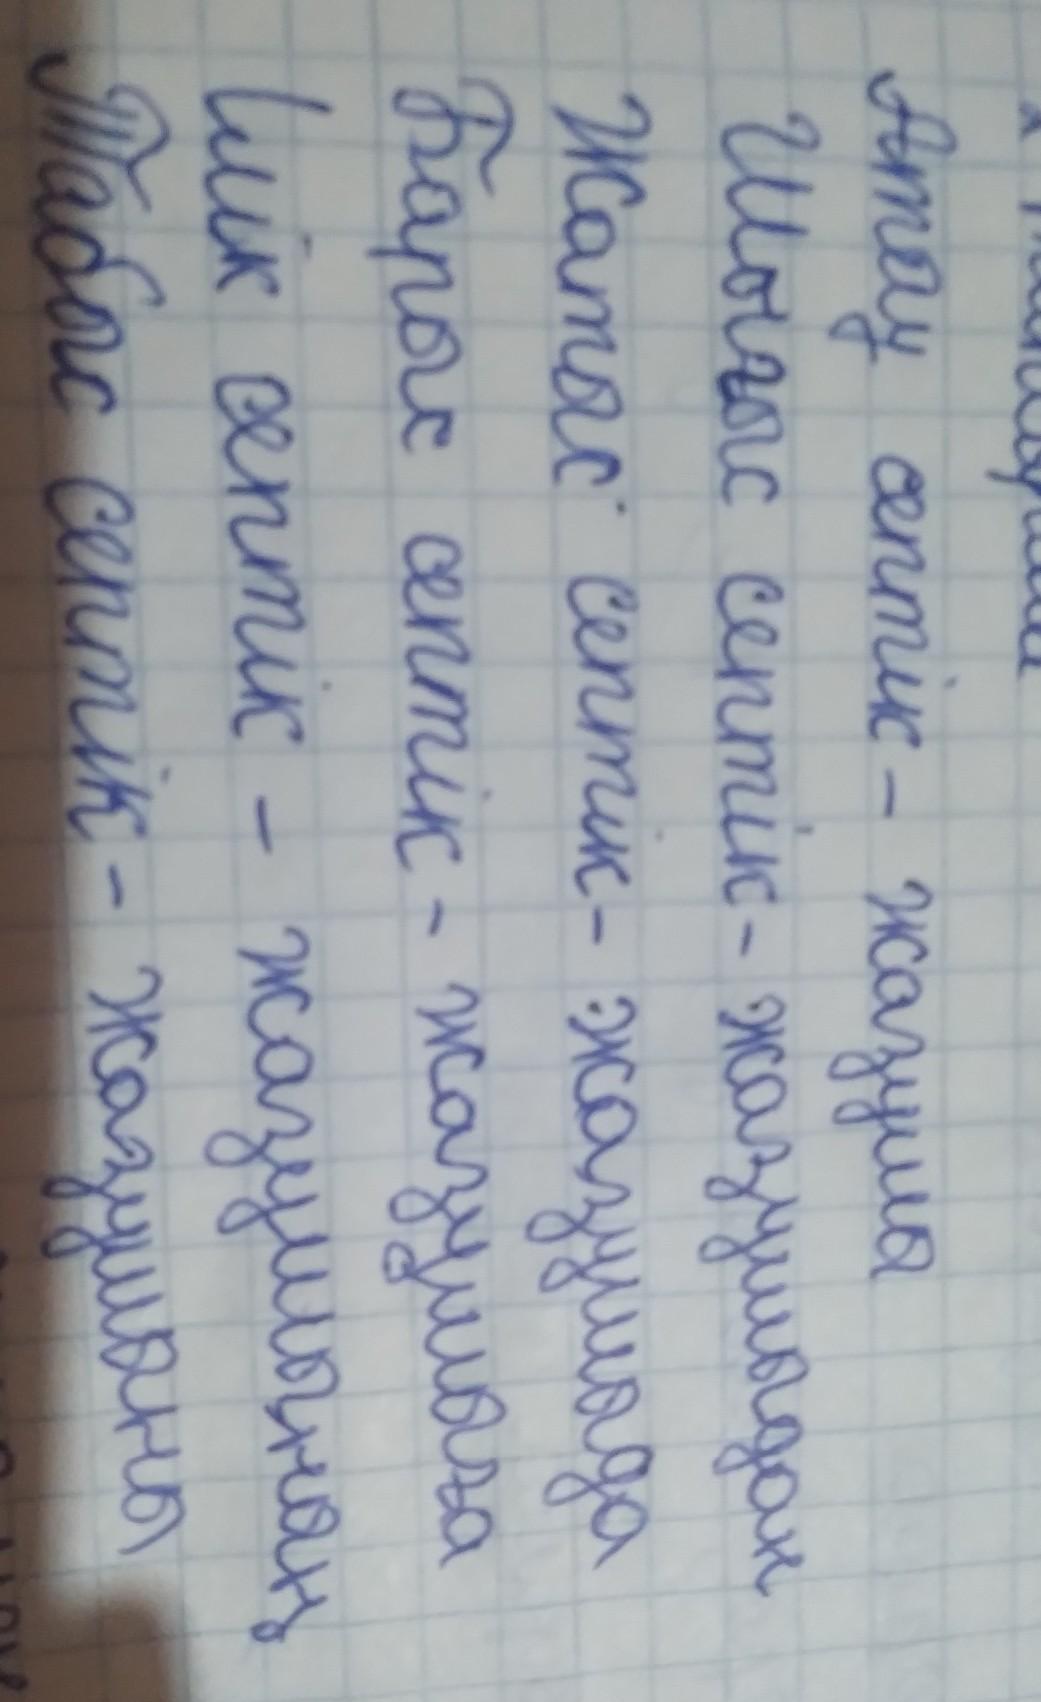 Атау септік - жазушы
Шығыс септік - жазушыдан
Жатыс септік - жазушыда
Барыс септік - жазушыға
Ілік септік - жазушының
Табыс септік - жазушыны